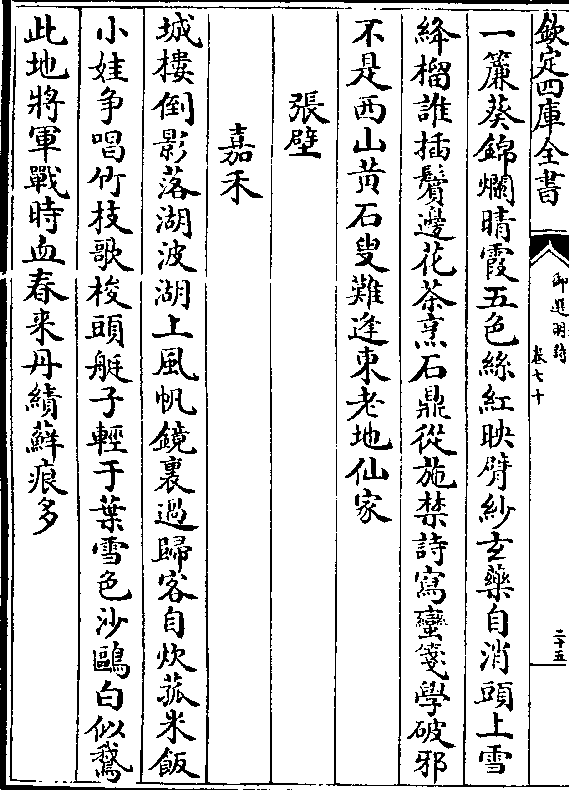 欽定四庫全書
御選明詩
卷七十
二十五
一簾葵錦爛晴霞五色絲紅映臂紗玄藥自消頭上雪
絳榴誰插鬢邊花茶烹石鼎從施禁詩寫蠻箋學破邪
不是西山黃石叟難逢東老地仙家
張壁
嘉禾
城樓倒影落湖波湖上風帆鏡裏過歸客自炊菰米飯
小娃争唱竹枝歌梭頭艇子輕于葉雪色沙鷗白似鵞
此地將軍戰時血春来丹繢蘚痕多